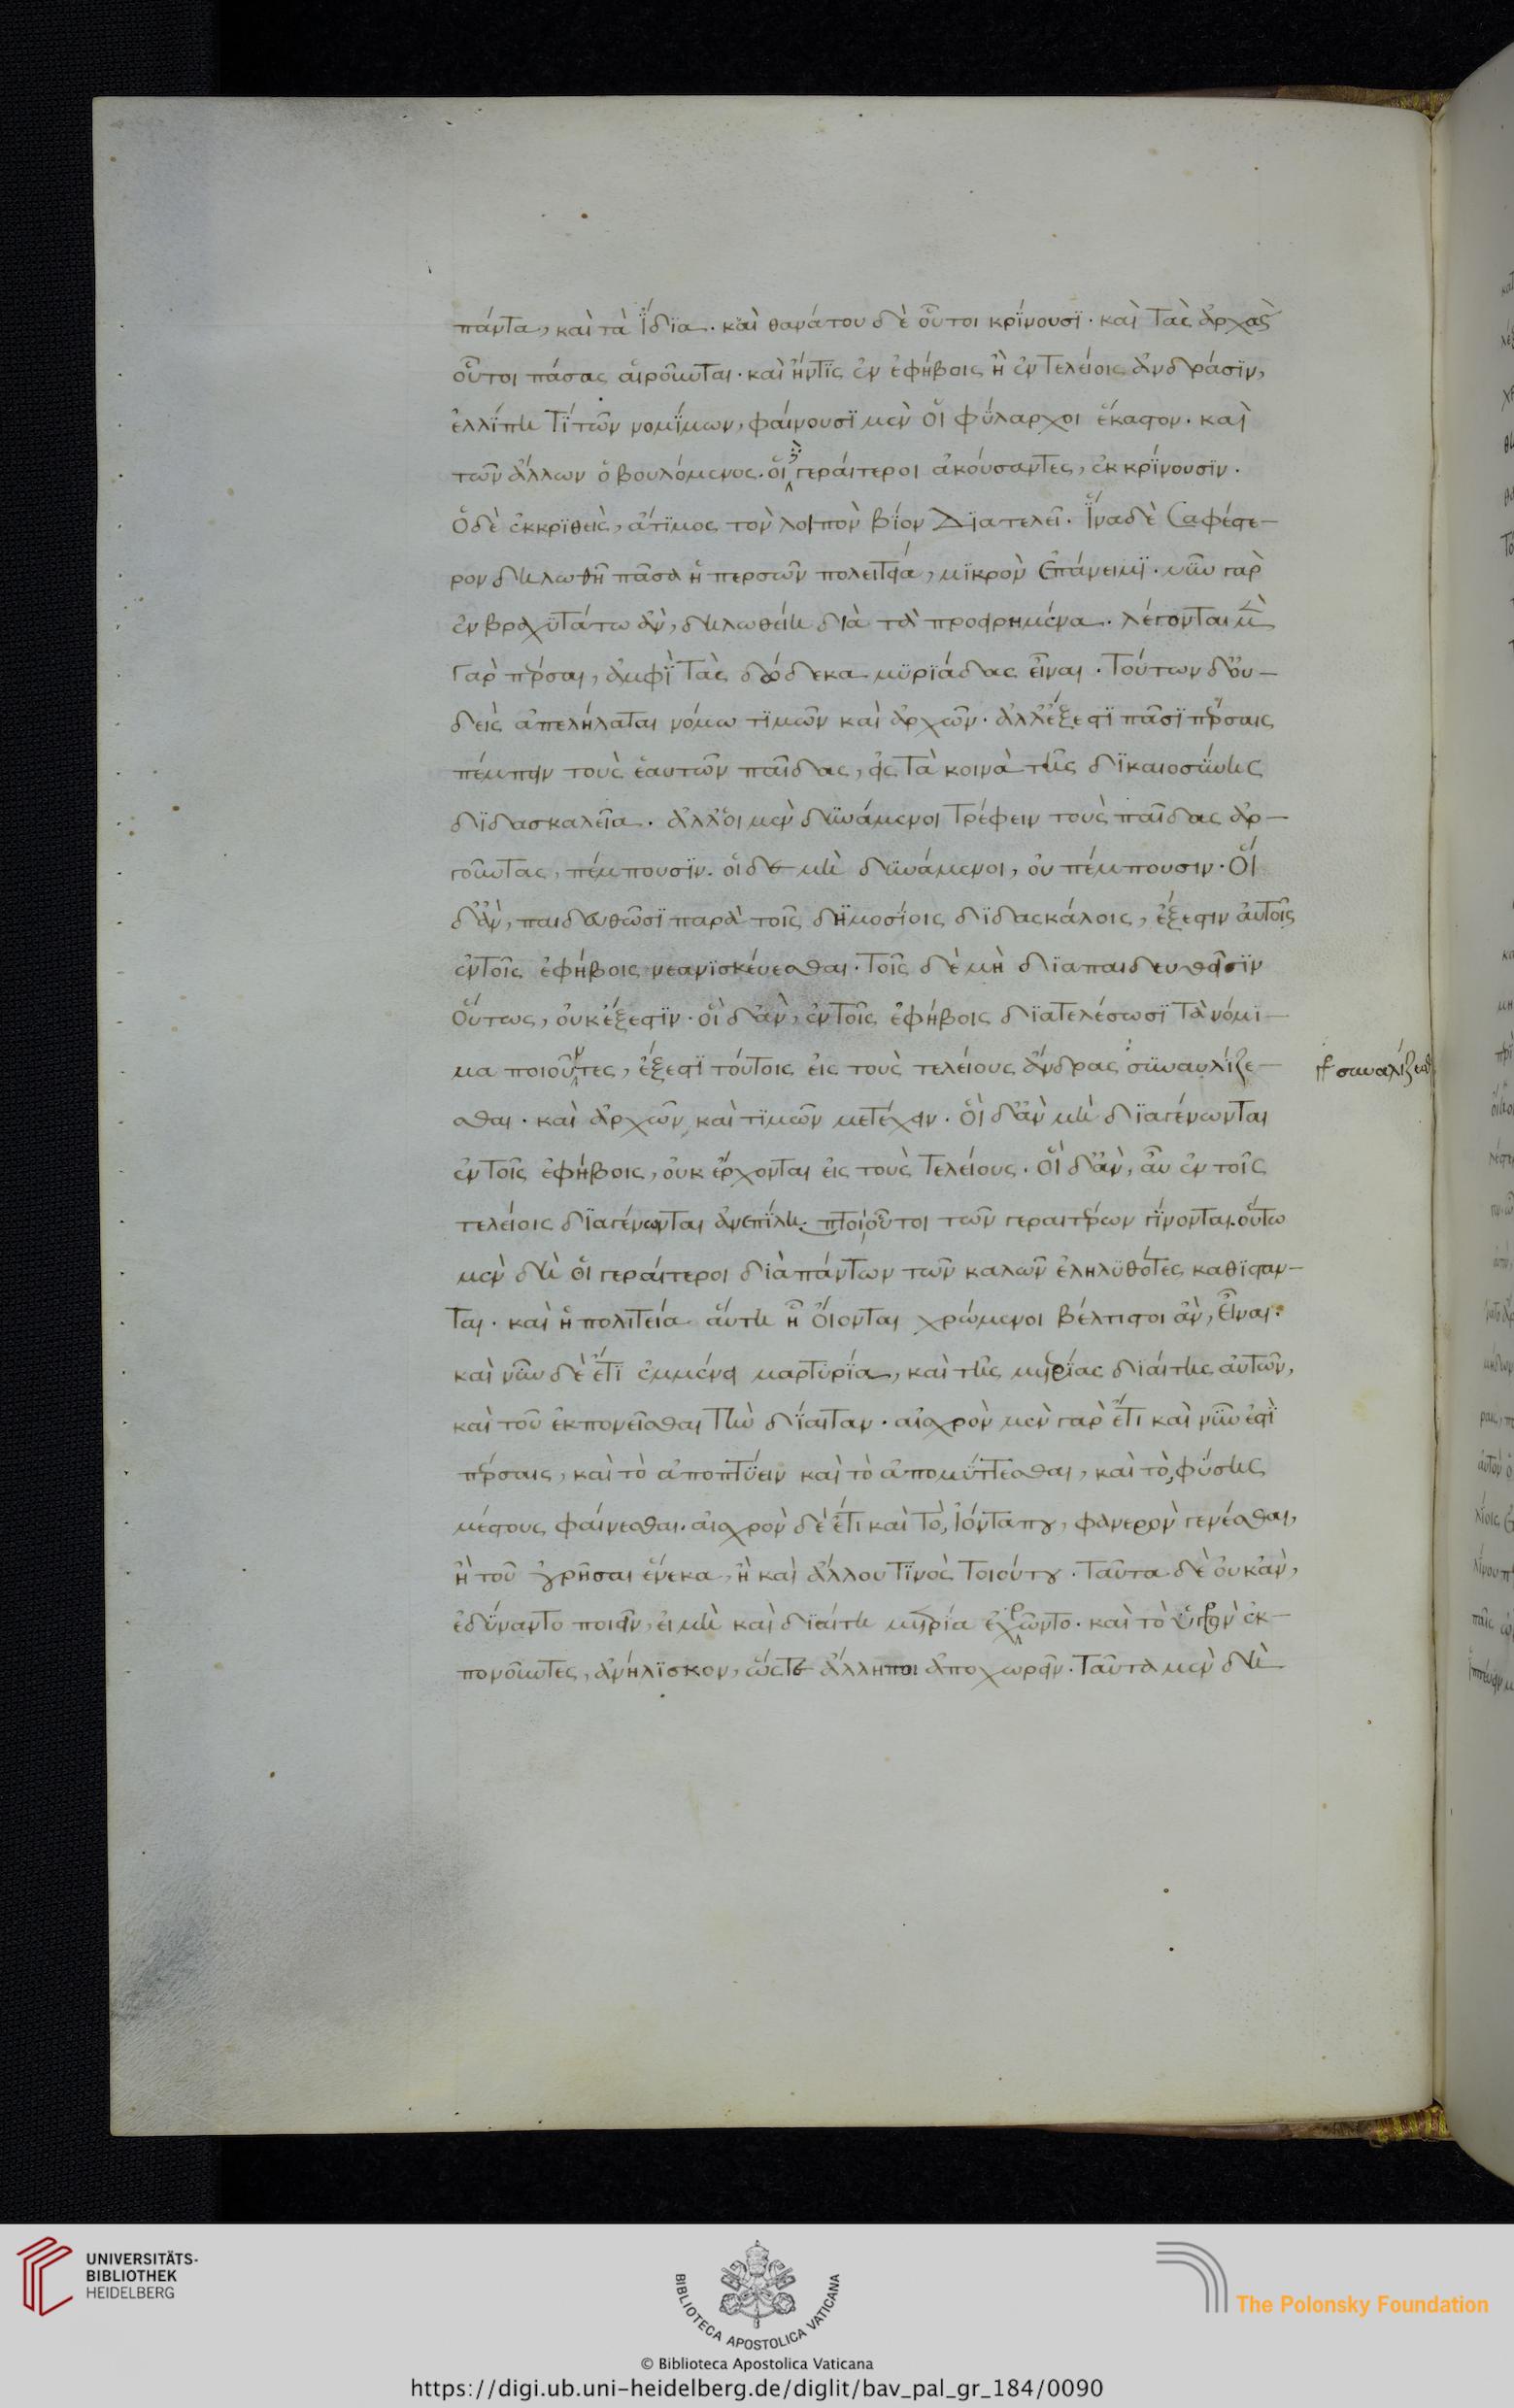 πάντα, καὶ τὰ ἴδϊα. καὶ θανάτου δὲ οὗτοι κρίνουσϊ· καὶ τὰς ἀρχὰς
οὗτοι πάσας αἱροῦνται· καὶ ἤν τϊς ἐν ἐφήβοις ἢ ἐν τελείοις ἀνδράσϊν,
ἐλλίπη τϊ τῶν νομίμων, φαίνουσϊ μὲν οἱ φύλαρχοι ἕκαστον· καὶ
τῶν ἄλλων ὁ βουλόμενος. οἱ γεραίτεροι ἀκούσαντες, ἐκκρίνουσϊν.
ὁ δὲ ἐκκρϊθεὶς, ἄτϊμος τὸν λοιπὸν βίον Δϊατελεῖ. ἵνα δὲ σαφέστε-
ρον δηλωθῇ πᾶσα ἡ περσῶν πολειτεία, μϊκρὸν ἐπάνειμϊ. νῦν γὰρ
ἐν βραχϋτάτω ἂν, δηλωθείη διὰ τὰ προειρημένα. λέγονται μὲν
γὰρ πέρσαι, ἀμφὶ τὰς δώδεκα μϋρϊάδας εἶναι. τούτων δ' οὐ-
δεὶς ἀπελήλαται νόμω τϊμῶν καὶ ἀρχῶν. ἀλλ' ἔξεστϊ πᾶσϊ πέρσαις
πέμπειν τοὺς ἑαυτῶν παῖδας, εἰς τὰ κοινὰ τῆς δϊκαιοσύνης
δϊδασκαλεῖα. ἀλλ' οἱ μὲν δϋνάμενοι τρέφειν τοὺς παῖδας ἀρ-
γοῦντας, πέμπουσϊν. οἱ δὲ μὴ δϋνάμενοι, οὐ πέμπουσιν. οἳ
δ' ἂν, παιδευθῶσϊ παρὰ τοῖς δημοσίοις δϊδασκάλοις, ἔξεστιν αὐτοῖς
ἐν τοῖς ἐφήβοις νεανϊσκεύεσθαι. τοῖς δὲ μὴ δϊαπαιδευθεῖσϊν
οὕτως, οὐκ ἔξεστϊν. οἳ δ' ἂν, ἐν τοῖς ἐφήβοις δϊατελέσωσϊ τὰ νόμϊ-
μα ποιοῦντες, ἔξεστϊ τούτοις εἰς τοὺς τελείους ἄνδρας σϋναυλίζε-
σθαι. καὶ ἀρχῶν καὶ τϊμῶν μετέχειν. οἳ δ' ἂν μὴ δϊαγένωνται
ἐν τοῖς ἐφήβοις, οὐκ ἔρχονται εἰς τοὺς τελείους. οἳ δ' ἂν, αὖ ἐν τοῖς
τελείοις δϊαγένωνται ἀνεπίλη. πτοι, οὗτοι τῶν γεραιτέρων γίνονται. οὕτω
μὲν δὴ οἱ γεραίτεροι διὰ πάντων τῶν καλῶν ἐληλϋθότες καθίσταν-
ται. καὶ ἡ πολιτεία αὕτη ἧ οἴονται χρώμενοι βέλτιστοι ἂν, εἶναι.
καὶ νῦν δὲ ἔτϊ ἐμμένει μαρτϋρία, καὶ τῆς μετρίας διαίτης αὐτῶν,
καὶ τοῦ ἐκπονεῖσθαι τὴν δίαιταν. αἰσχρὸν μὲν γὰρ ἔτι καὶ νῦν ἐστὶ
πέρσαις, καὶ τὸ ἀποπτύειν καὶ τὸ ἀπομύττεσθαι, καὶ τὸ, φύσης
μέστους φαίνεσθαι. αἰσχρὸν δὲ ἔτι καὶ τὸ, ἰόντα που, φανερὸν γενέσθαι,
ἢ τοῦ οὐρῆσαι ἕνεκα, ἢ καὶ ἄλλου τϊνὸς τοιούτου. ταῦτα δὲ οὐκ ἂν,
ἐδύναντο ποιεῖν, εἰ μὴ καὶ δϊαίτη μετρία ἐχρῶντο. καὶ τὸ ὑγρὸν ἐκ-
πονοῦντες, ἀνήλϊσκον, ὥστε ἄλλη ποι ἀποχωρεῖν. ταῦτα μὲν δὴ
UNIVERSITÄTS-
BIBLIOTHEK
HEIDELBERG
BIBLIOTECA APOSTOLICA VATICANA
The Polonsky Foundation
© Biblioteca Apostolica Vaticana
https://digi.ub.uni-heidelberg.de/diglit/bav_pal_gr_184/0090